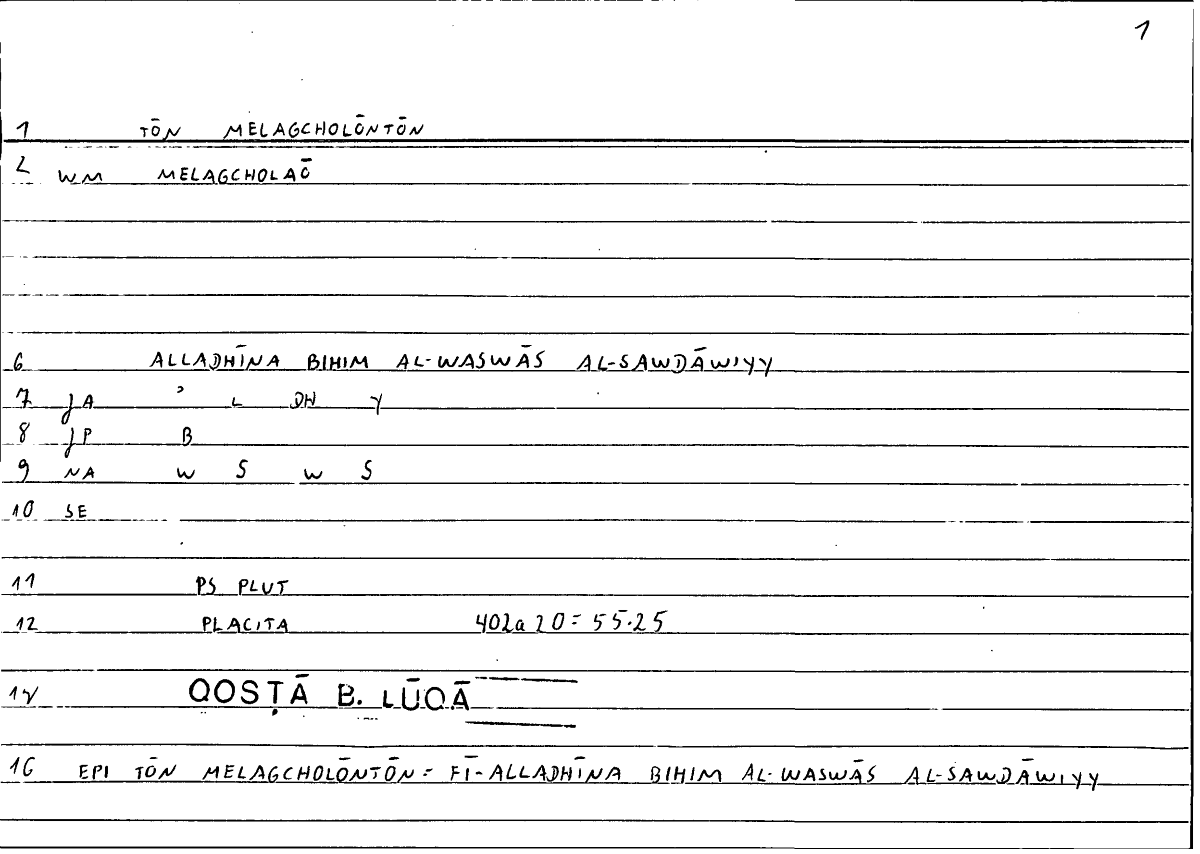 1
1 TŌN MELAGCHOLŌNTŌN
2 WM MELAGCHOLAŌ
6 ALLADHĪNA BIHIM AL-WASWĀS AL-SAWDĀWIYY
7 JA ʾ L DH Y
8 JP B
9 NA W S W S
10 SE
11 PS PLUT
12 PLACITA 402a20 = 55.25
14 QOSṬĀ B. LŪQĀ
16 EPI TŌN MELAGCHOLŌNTŌN = FĪ-ALLADHĪNA BIHIM AL-WASWĀS AL-SAWDĀWIYY